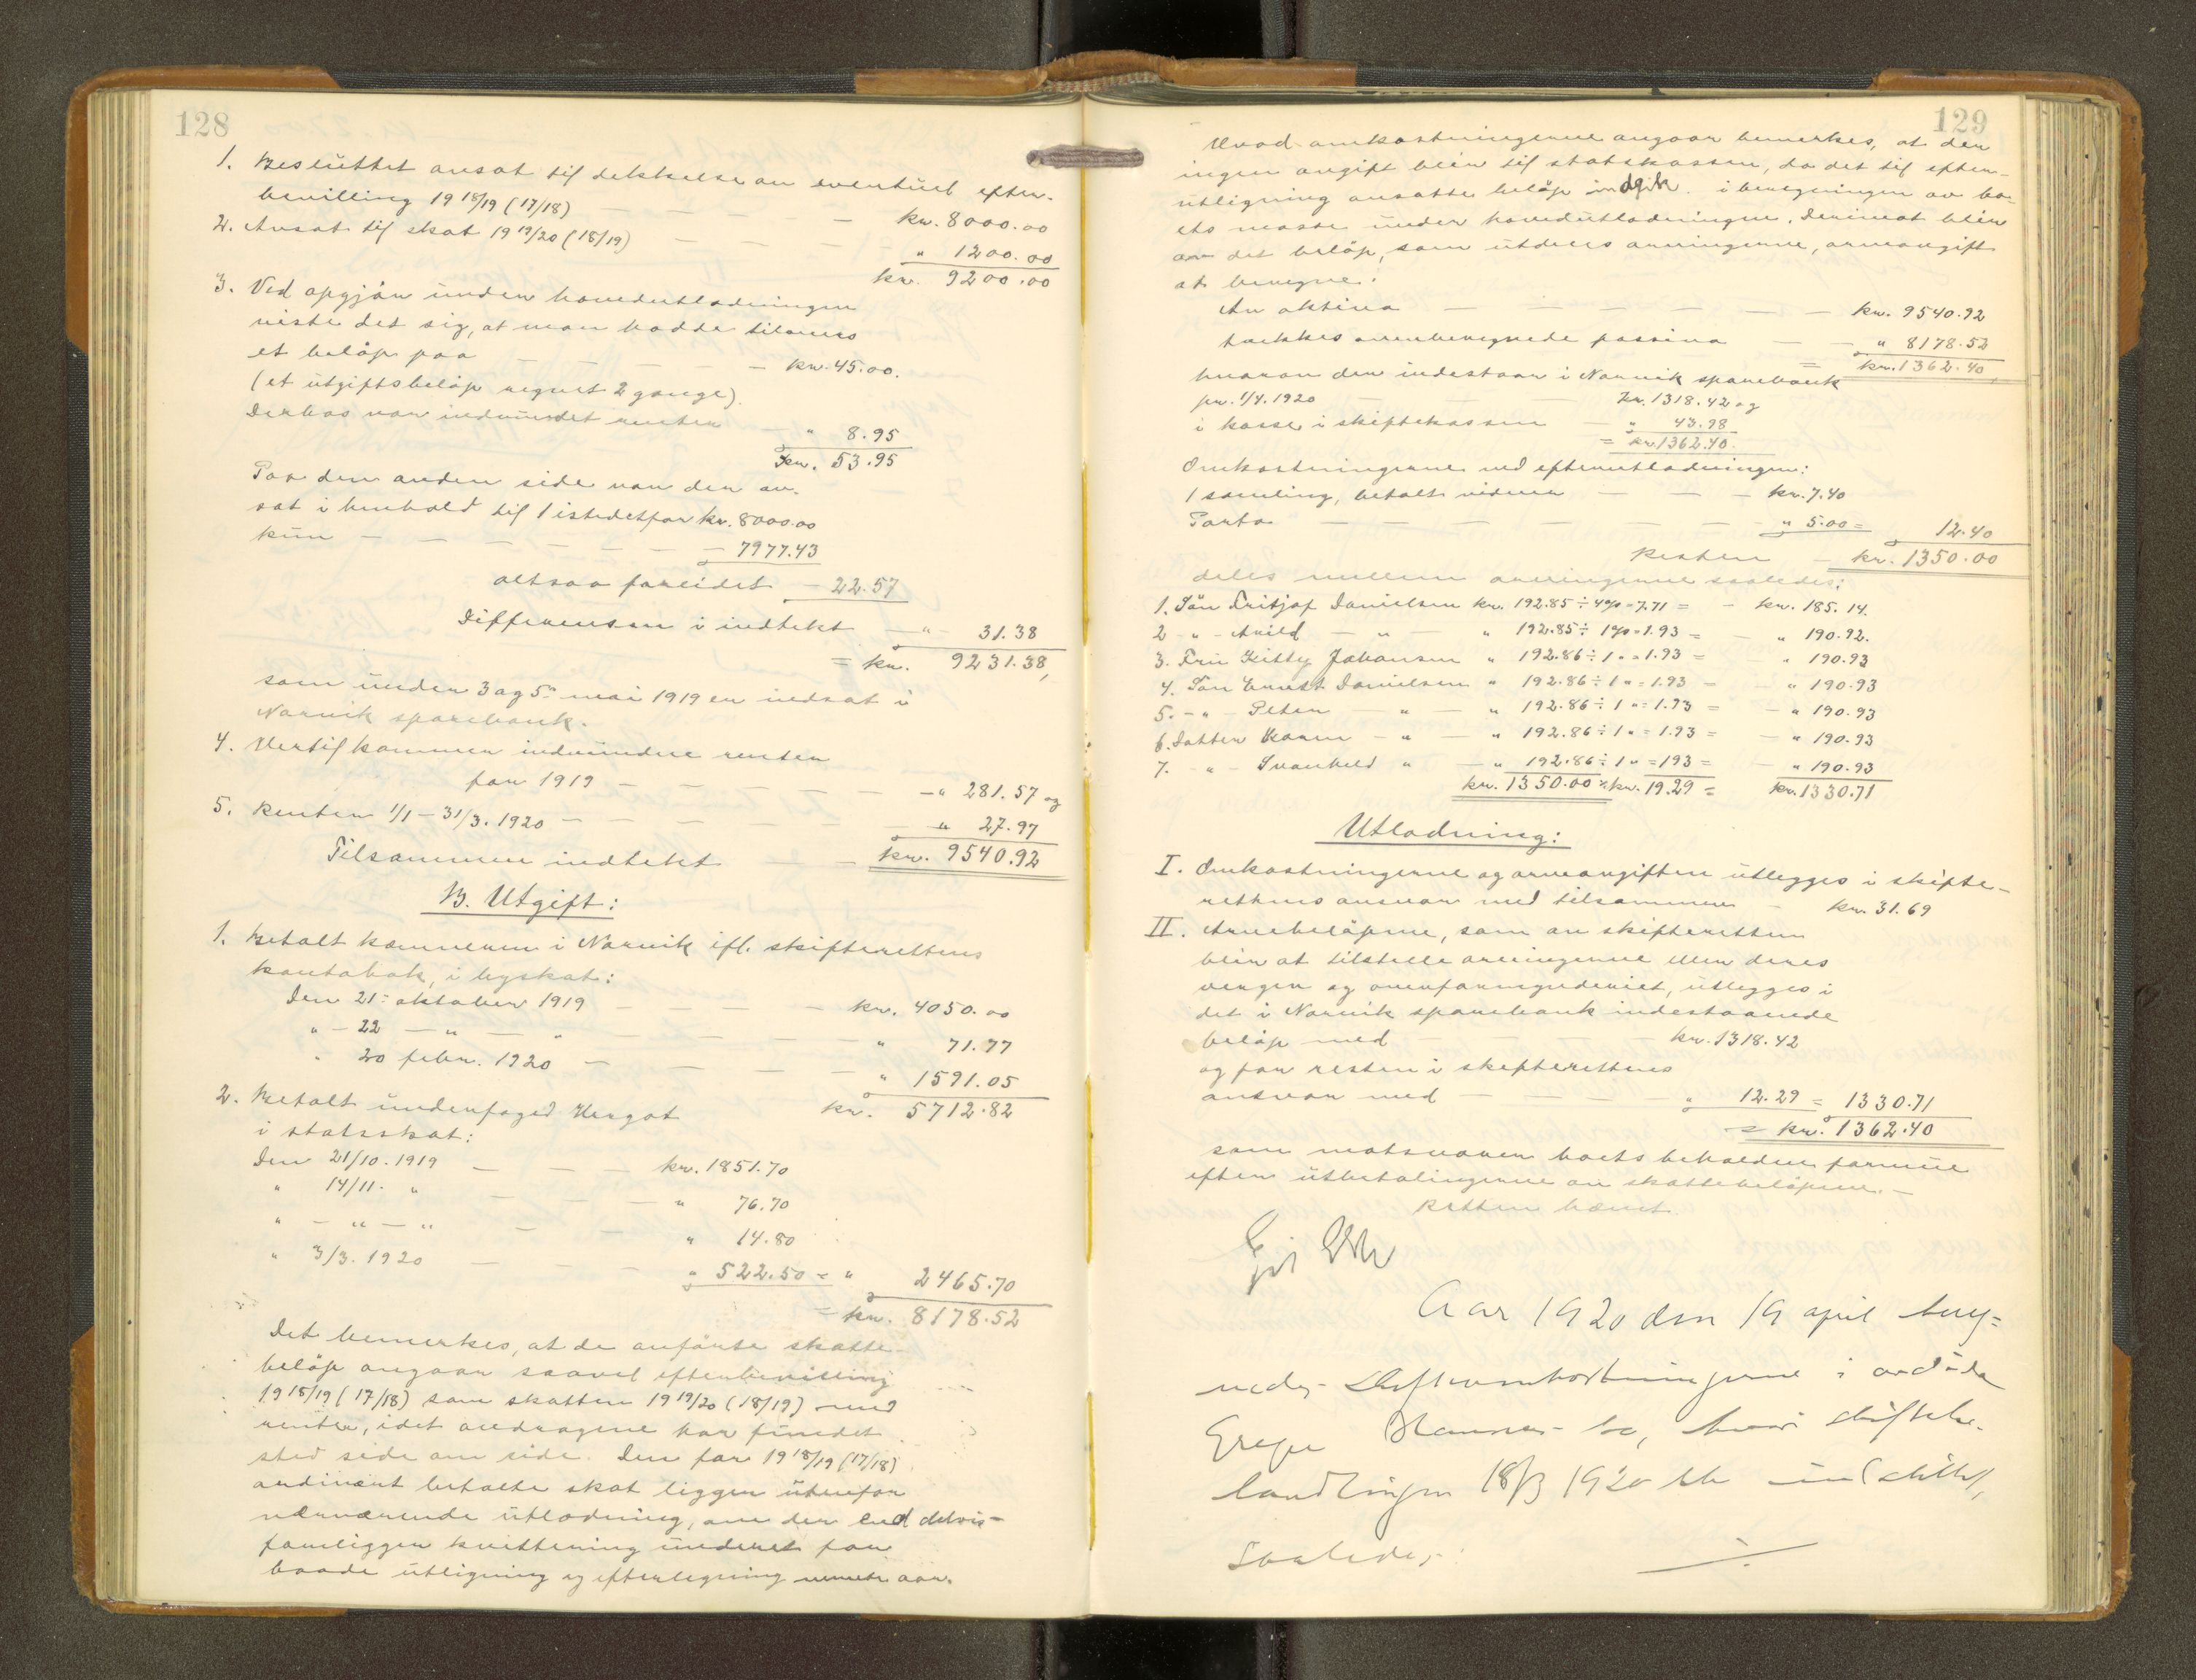 128
1. Besluttet ansat til dekkelse av eventuel efter-
bevilling 19 18/19 (17/18) — — — — kr. 8000.00
2. Ansat til skat 19 19/20 (18/19) — — — — " 1200.00
kr. 9200.00
3. Ved opgjör under hovedutlodningen
viste det sig, at man hadde tilovers
et belöp paa — — — — kr. 45.00.
(et utgiftsbelöp regnet 2 gange).
Derhos var indvundet renter — " 8.95
kr. 53.95
Paa den anden side var der an-
sat i henhold til 1 istedetfor kr. 8000.00
kun — — — — — — — 7977.43
altsaa forlidet — 22.57
Differensen i indtekt — " 31.38
= kr. 9231.38,
som under 3 og 5te mai 1919 er indsat i
Narvik sparebank.
4. Hertil kommer indvundne renter
for 1919 — — — — — " 281.57 og
5. Renter 1/1 – 31/3. 1920 — — — — " 27.97
Tilsammen indtekt — — kr. 9540.92
B. Utgift:
1. Betalt kæmneren i Narvik ifl. skifterettens
kontobok, i byskat:
Den 21. oktober 1919 — — — — kr. 4050.00
" – 22 — " — " — — — " 71.77
" 20 febr. 1920 — — — — " 1591.05
kr. 5712.82
2. Betalt underfoged Hergot
i statsskat:
Den 21/10. 1919 — — — kr. 1851.70
" 14/11. " — — — " 76.70
" – " – " — — " 14.80
" 3/3. 1920 — — — " 522.50 = " 2465.70
= kr. 8178.52
Det bemerkes, at de anförte skatte-
belöp angaar saavel efterbevilling
19 18/19 (17/18) som skatten 19 19/20 (18/19) med
renter, idet andragene har fundet
sted side om side. Den for 19 18/19 (17/18)
ordinært betalte skat ligger utenfor
nærværende utlodning, om der end delvis
foreligger kvittering underet for
baade utligning og efterlegning nevnte aar.
129
Hvad omkostningerne angaar bemerkes, at der
ingen avgift blir til statskassen, da det til efter-
utligning ansatte belöp indgik i beregningen av bo-
ets masse under hovedutlodningen. Derimot blir
av det belöp, som utdeles arvingerne, arveavgift
at beregne.
Av aktiva — — — — — — kr. 9540.92
trækkes ovenberegnede passiva — — " 8178.52
= kr. 1362.40,
hvorav der indestaar i Narvik sparebank
pr. 1/4. 1920 — — — kr. 1318.42 og
i kasse i skiftekassen — " 43.98
= kr. 1362.40.
Omkostningerne ved efterutlodningen:
1 samling, betalt vidner — — — kr. 7.40
Porto — — — — — — " 5.00 = 12.40
Resten — kr. 1350.00
deles mellem arvingerne saaledes:
1. Sön Fritjof Danielsen kr. 192.85 ÷ 4% = 7.71 = – kr. 185.14.
2 – " – Arild — " — " 192.85 ÷ 1% = 1.93 = — " 190.92.
3. Fru Kitty Johansen " 192.86 ÷ 1 " = 1.93 = " 190.93
4. Sön Ernst Danielsen " 192.86 ÷ 1 " = 1.93 = — " 190.93
5. – " – Peter — " — " 192.86 ÷ 1 " = 1.93 = — " 190.93
6. Datter Karen – " — " 192.86 ÷ 1 " = 1.93 = — " 190.93
7. – " – Svanhild " — " 192.86 ÷ 1 " = 193 = — " 190.93
kr. 1350.00 ÷ kr. 19.29 = kr. 1330.71
Utlodning:
I. Omkostningerne og arveavgiften utlegges i skifte-
rettens ansvar med tilsammen — kr. 31.69
II. Arvebelöpene, som av skifteretten
blir at tilstille arvingerne eller deres
verger og overformynderiet, utlegges i
det i Narvik sparebank indestaaende
belöp med — — — kr. 1318.42
og for resten i skifterettens
ansvar med — — — — " 12.29 = 1330.71
= kr. 1362.40
som motsvarer boets beholdne formue
efter utbetalingerne av skattebelöpene. –
Retten hævet.
Aar 1920 den 19 april
nedes Skifteomkostningerne i avdöde
Hansens bo, hvis skiftebe-
handlingen 18/3 1920 ble
saaledes: